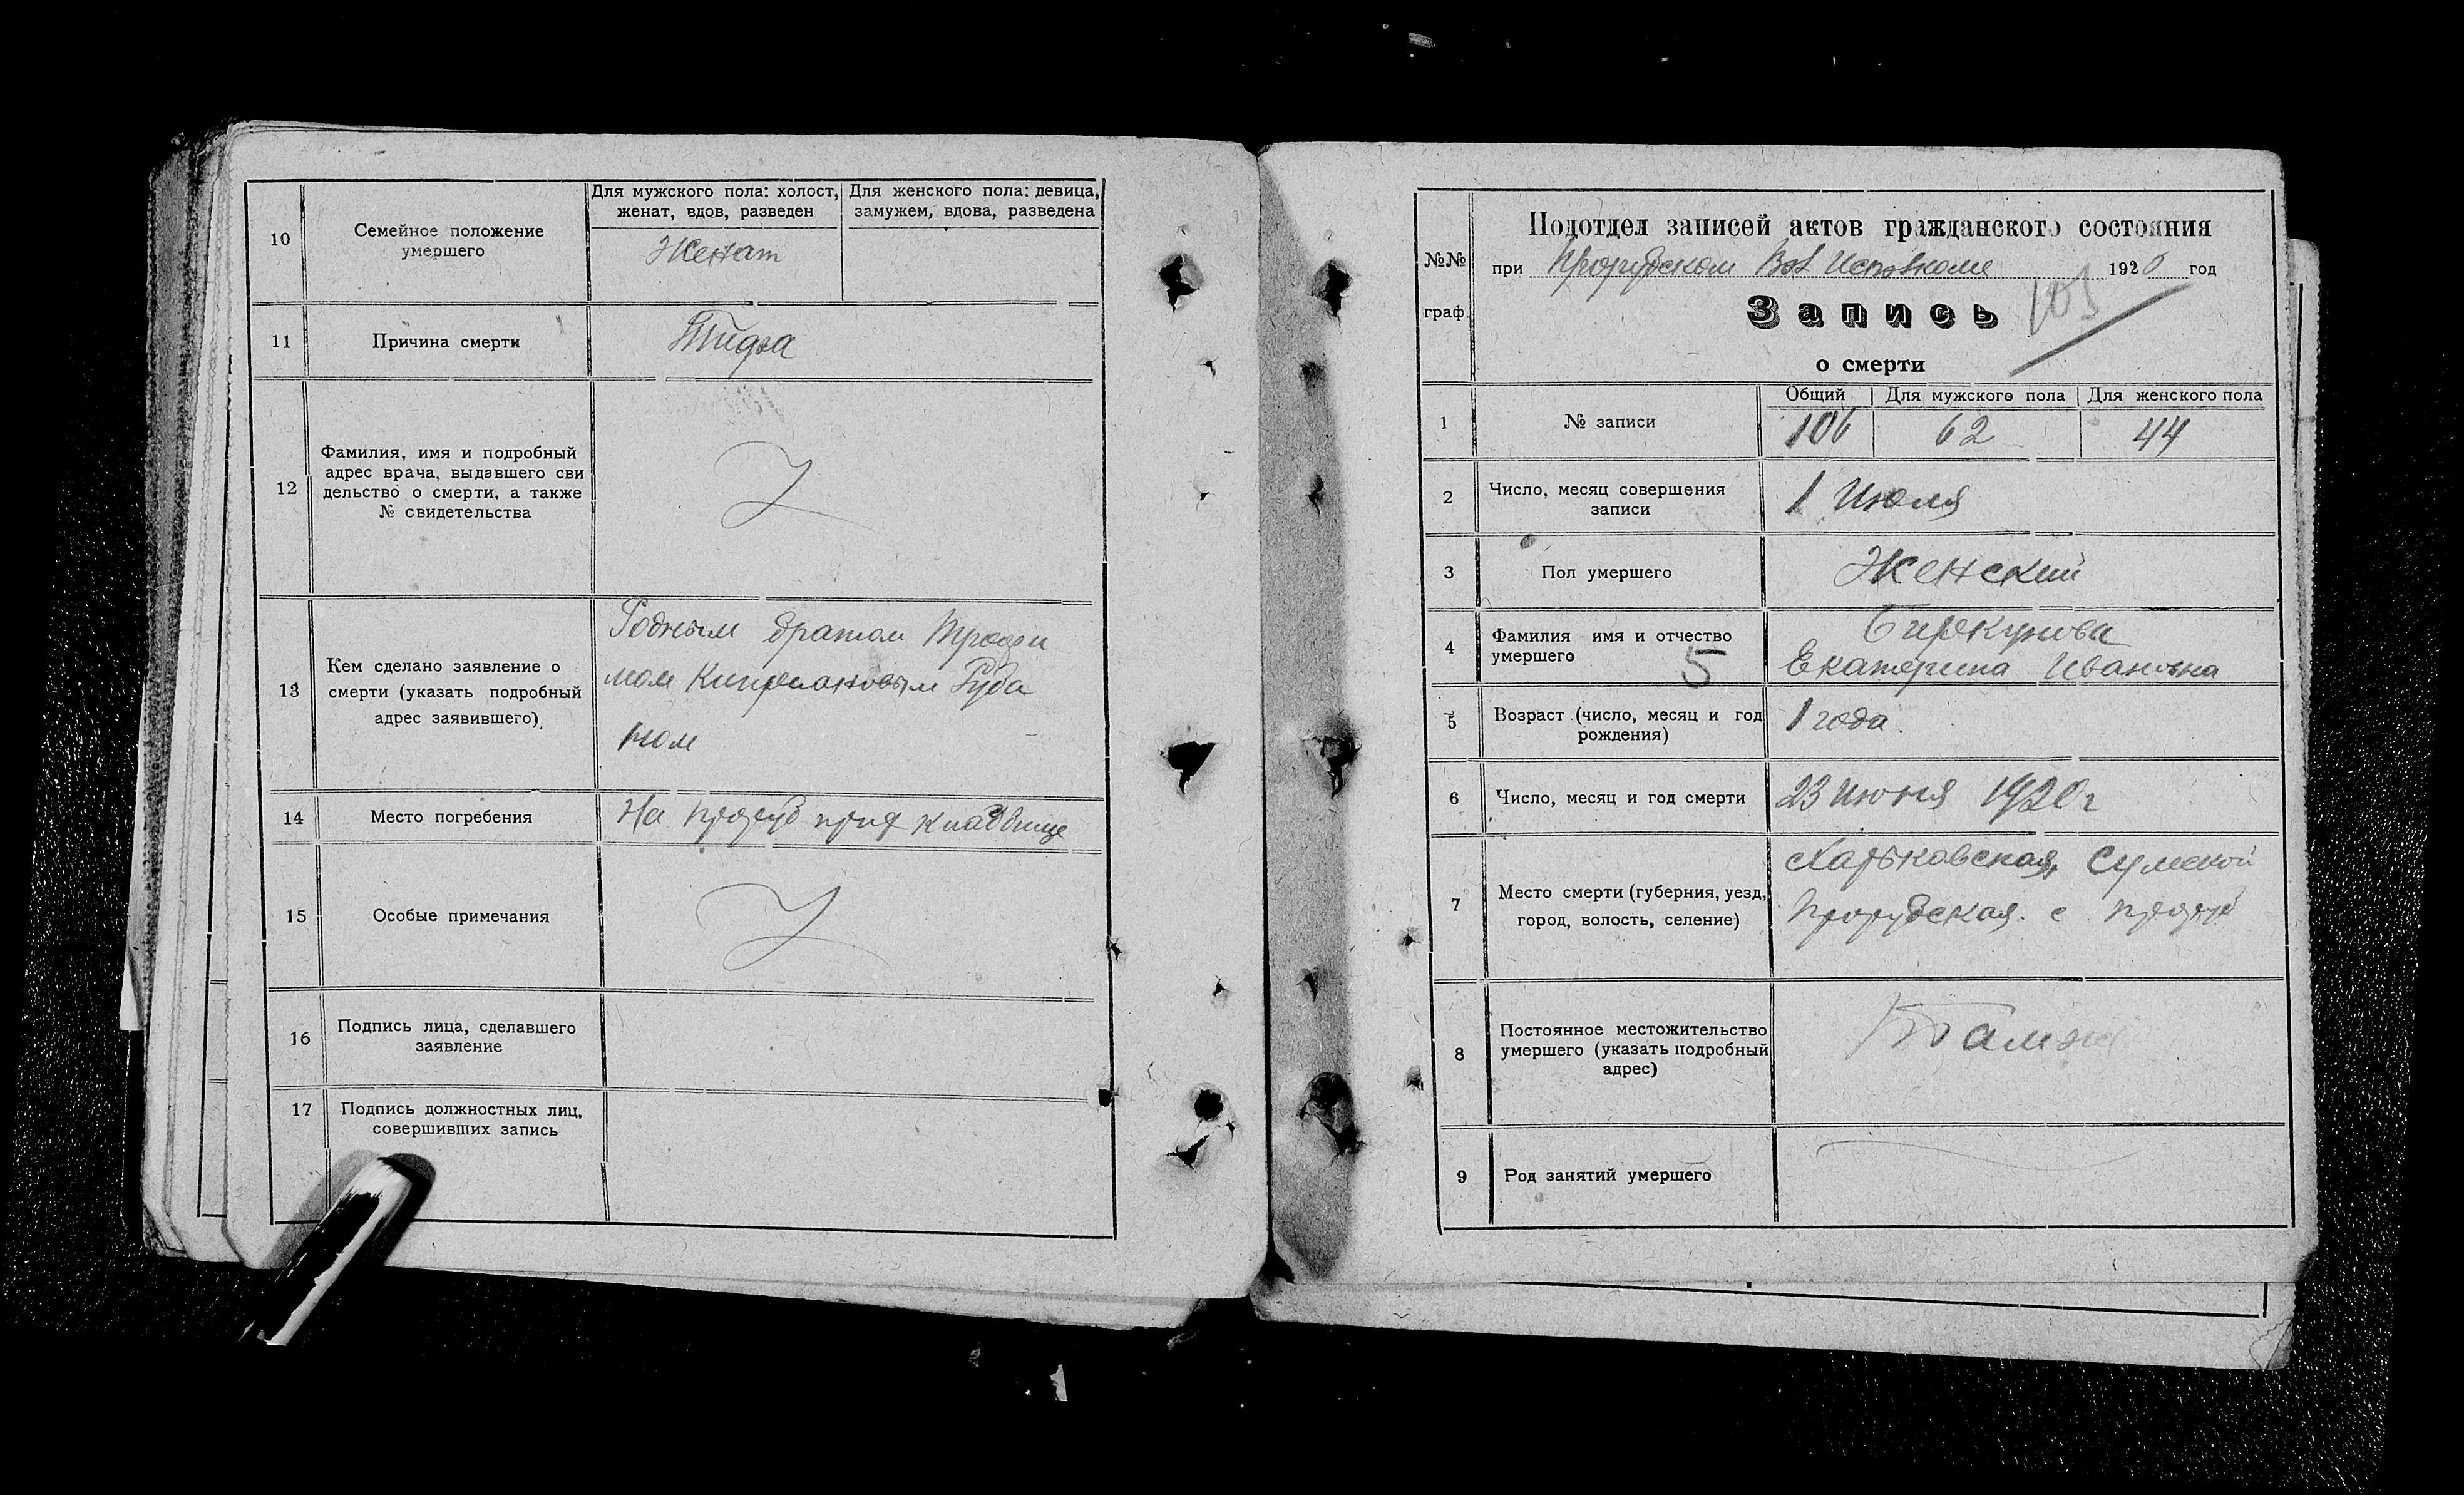 10
Семейное положение
умершего
Для мужского пола: холост,
женат, вдов, разведен
Для женского пола: девица,
замужем, вдова, разведена
Женат
11
Причина смерти
Тифа
12
Фамилия, имя и подробный
адрес врача, выдавшего сви
дельство о смерти, а также
№ свидетельства
13
Кем сделано заявление о
смерти (указать подробный
адрес заявившего)
Родным братом Трофи
мом Киприановым Руба
ном
14
Место погребения
На проруб прих кладбище
15
Особые примечания
16
Подпись лица, сделавшего
заявление
17
Подпись должностных лиц,
совершивших запись
№№
граф.
Подотдел записей актов гражданского состояния
при Прорубском Вол Исполкоме 1920 год
Запись
105
о смерти
1
№ записи
Общий
Для мужского пола
Для женского пола
106
62
44
2
Число, месяц совершения
записи
1 Июля
3
Пол умершего
Женский
4
Фамилия имя и отчество
умершего
5
Екатерина Ивановна
5
Возраст (число, месяц и год
рождения)
1 года.
6
Число, месяц и год смерти
23 Июня 1920 г
7
Место смерти (губерния, уезд,
город, волость, селение)
Харьковская, Сумской
Прорубская. с проруб
8
Постоянное местожительство
умершего (указать подробный
адрес)
Тамже
9
Род занятий умершего